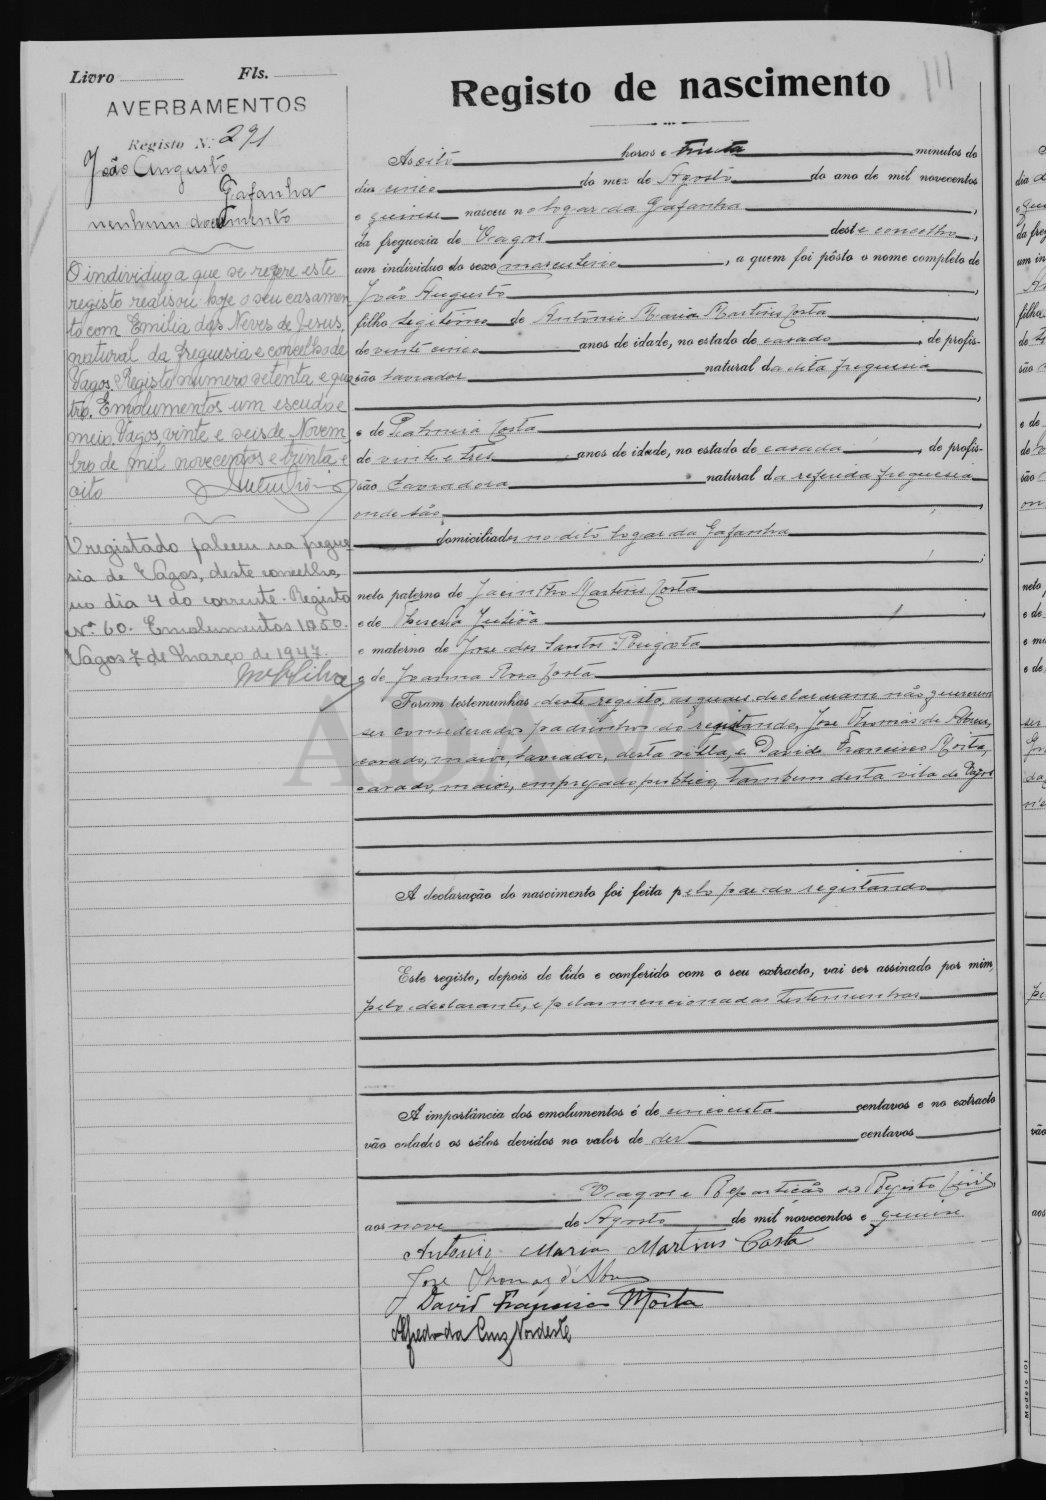 Livro Fls.
AVERBAMENTOS
Registo N.º 291
João Augusto
Gafanha
nenhum documento
O individuo a que se refere este
registo realisou hoje o seu casamen
to com Emilia das Neves de Jesus,
natural da freguesia e concelho de
Vagos. Registo numero setenta e qua
tro. Emolumentos um escudo e
meio. Vagos, vinte e seis de Novem
bro de mil novecentos e trinta e
oito
O registado faleceu na fregue
sia de Vagos, deste concelho,
no dia 4 do corrente. Registo
Nº 60. Emolumentos 1$50.
Vagos 7 de Março de 1947.
Registo de nascimento
As oito horas e trinta minutos do
dia cinco do mez de Agosto do ano de mil novecentos
e quinse nasceu no logar da Gafanha,
da freguezia de Vagos deste concelho,
um individuo do sexo masculino, a quem foi pôsto o nome completo de
João Augusto,
filho legitimo de António Maria Martins Costa
de vinte cinco anos de idade, no estado de casado, de profis-
são lavrador natural da dita freguesia
,
e de Palmira Costa
de vinte e tres anos de idade, no estado de casada, de profis-
são lavradora natural da referida freguesia
onde são,
domiciliados no dito logar da Gafanha
;
neto paterno de Jacintho Martins Costa
e de Thereza Julióa
e materno de José dos Santos
e de Joanna Rosa Costa
Foram testemunhas deste registo, as quaes declararam não quererem
ser consederados padrinhos do registando, Jose Thomás de Abreu,
casado, maior, lavrador, desta villa, e David Francisco Morta,
casado, maior, empregado publico, tambem desta vila de Vagos
A declaração do nascimento foi feita pelo pae do registando
Este registo, depois de lido e conferido com o seu extracto, vai ser assinado por mim,
pelo declarante, e pelas mencionadas testemunhas
A importância dos emolumentos é de cincoenta centavos e no extracto
vão colados os sêlos devidos no valor de dez centavos
Vagos e Repartição do Registo Civil
aos nove de Agosto de mil novecentos e quinse
Antonio Maria Martins Costa
Jose Thomaz d'Abreu
David Francisco Morta
Alfredo da Cruz Nordeste
Modelo 101